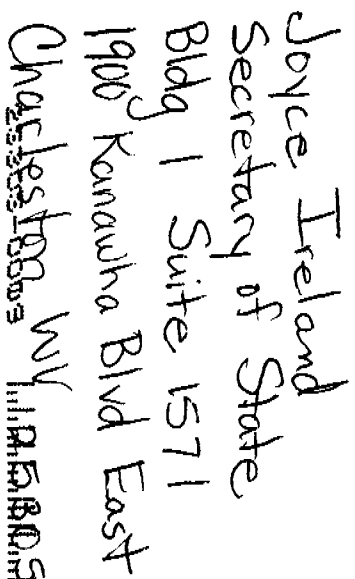 Joyce Ireland
Secretary of State
Bldg 1 Suite 1571
1900 Kanawha Blvd East
Charleston WV